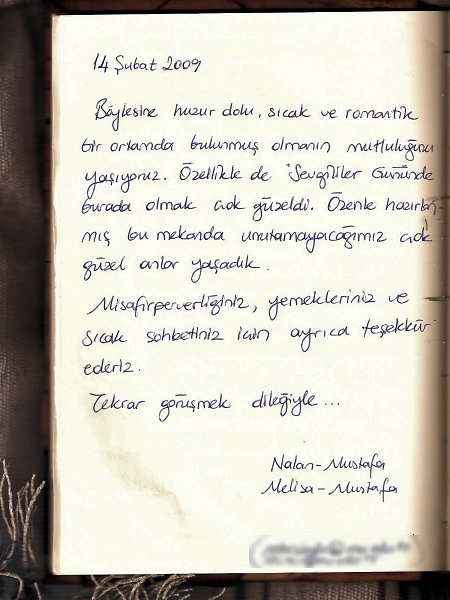 14 Şubat 2009
Böylesine huzur dolu, sıcak ve romantik
bir ortamda bulunmuş olmanın mutluluğunu
yaşıyoruz. Özellikle de Sevgililer Gününde
burada olmak çok güzeldi. Özenle hazırlan-
mış bu mekanda unutamayacağımız çok
güzel anlar yaşadık.
Misafirperverliğiniz, yemekleriniz ve
sıcak sohbetiniz için ayrıca teşekkür
ederiz.
Tekrar görüşmek dileğiyle...
Nalan-Mustafa
Melisa-Mustafa